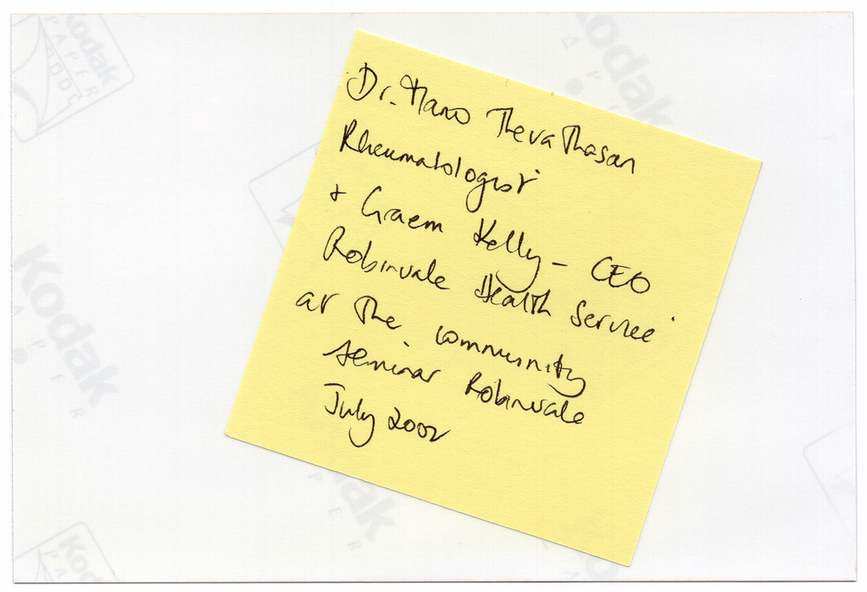 Dr. Mano Thevathasan
Rheumatologist
+ Graem Kelly – CEO
Robinvale Health Service
at the community
seminar Robinvale
July 2002
Kodak
PAPER
Kodak
Kodak
PAPER
Kodak
Kodak
PAPER